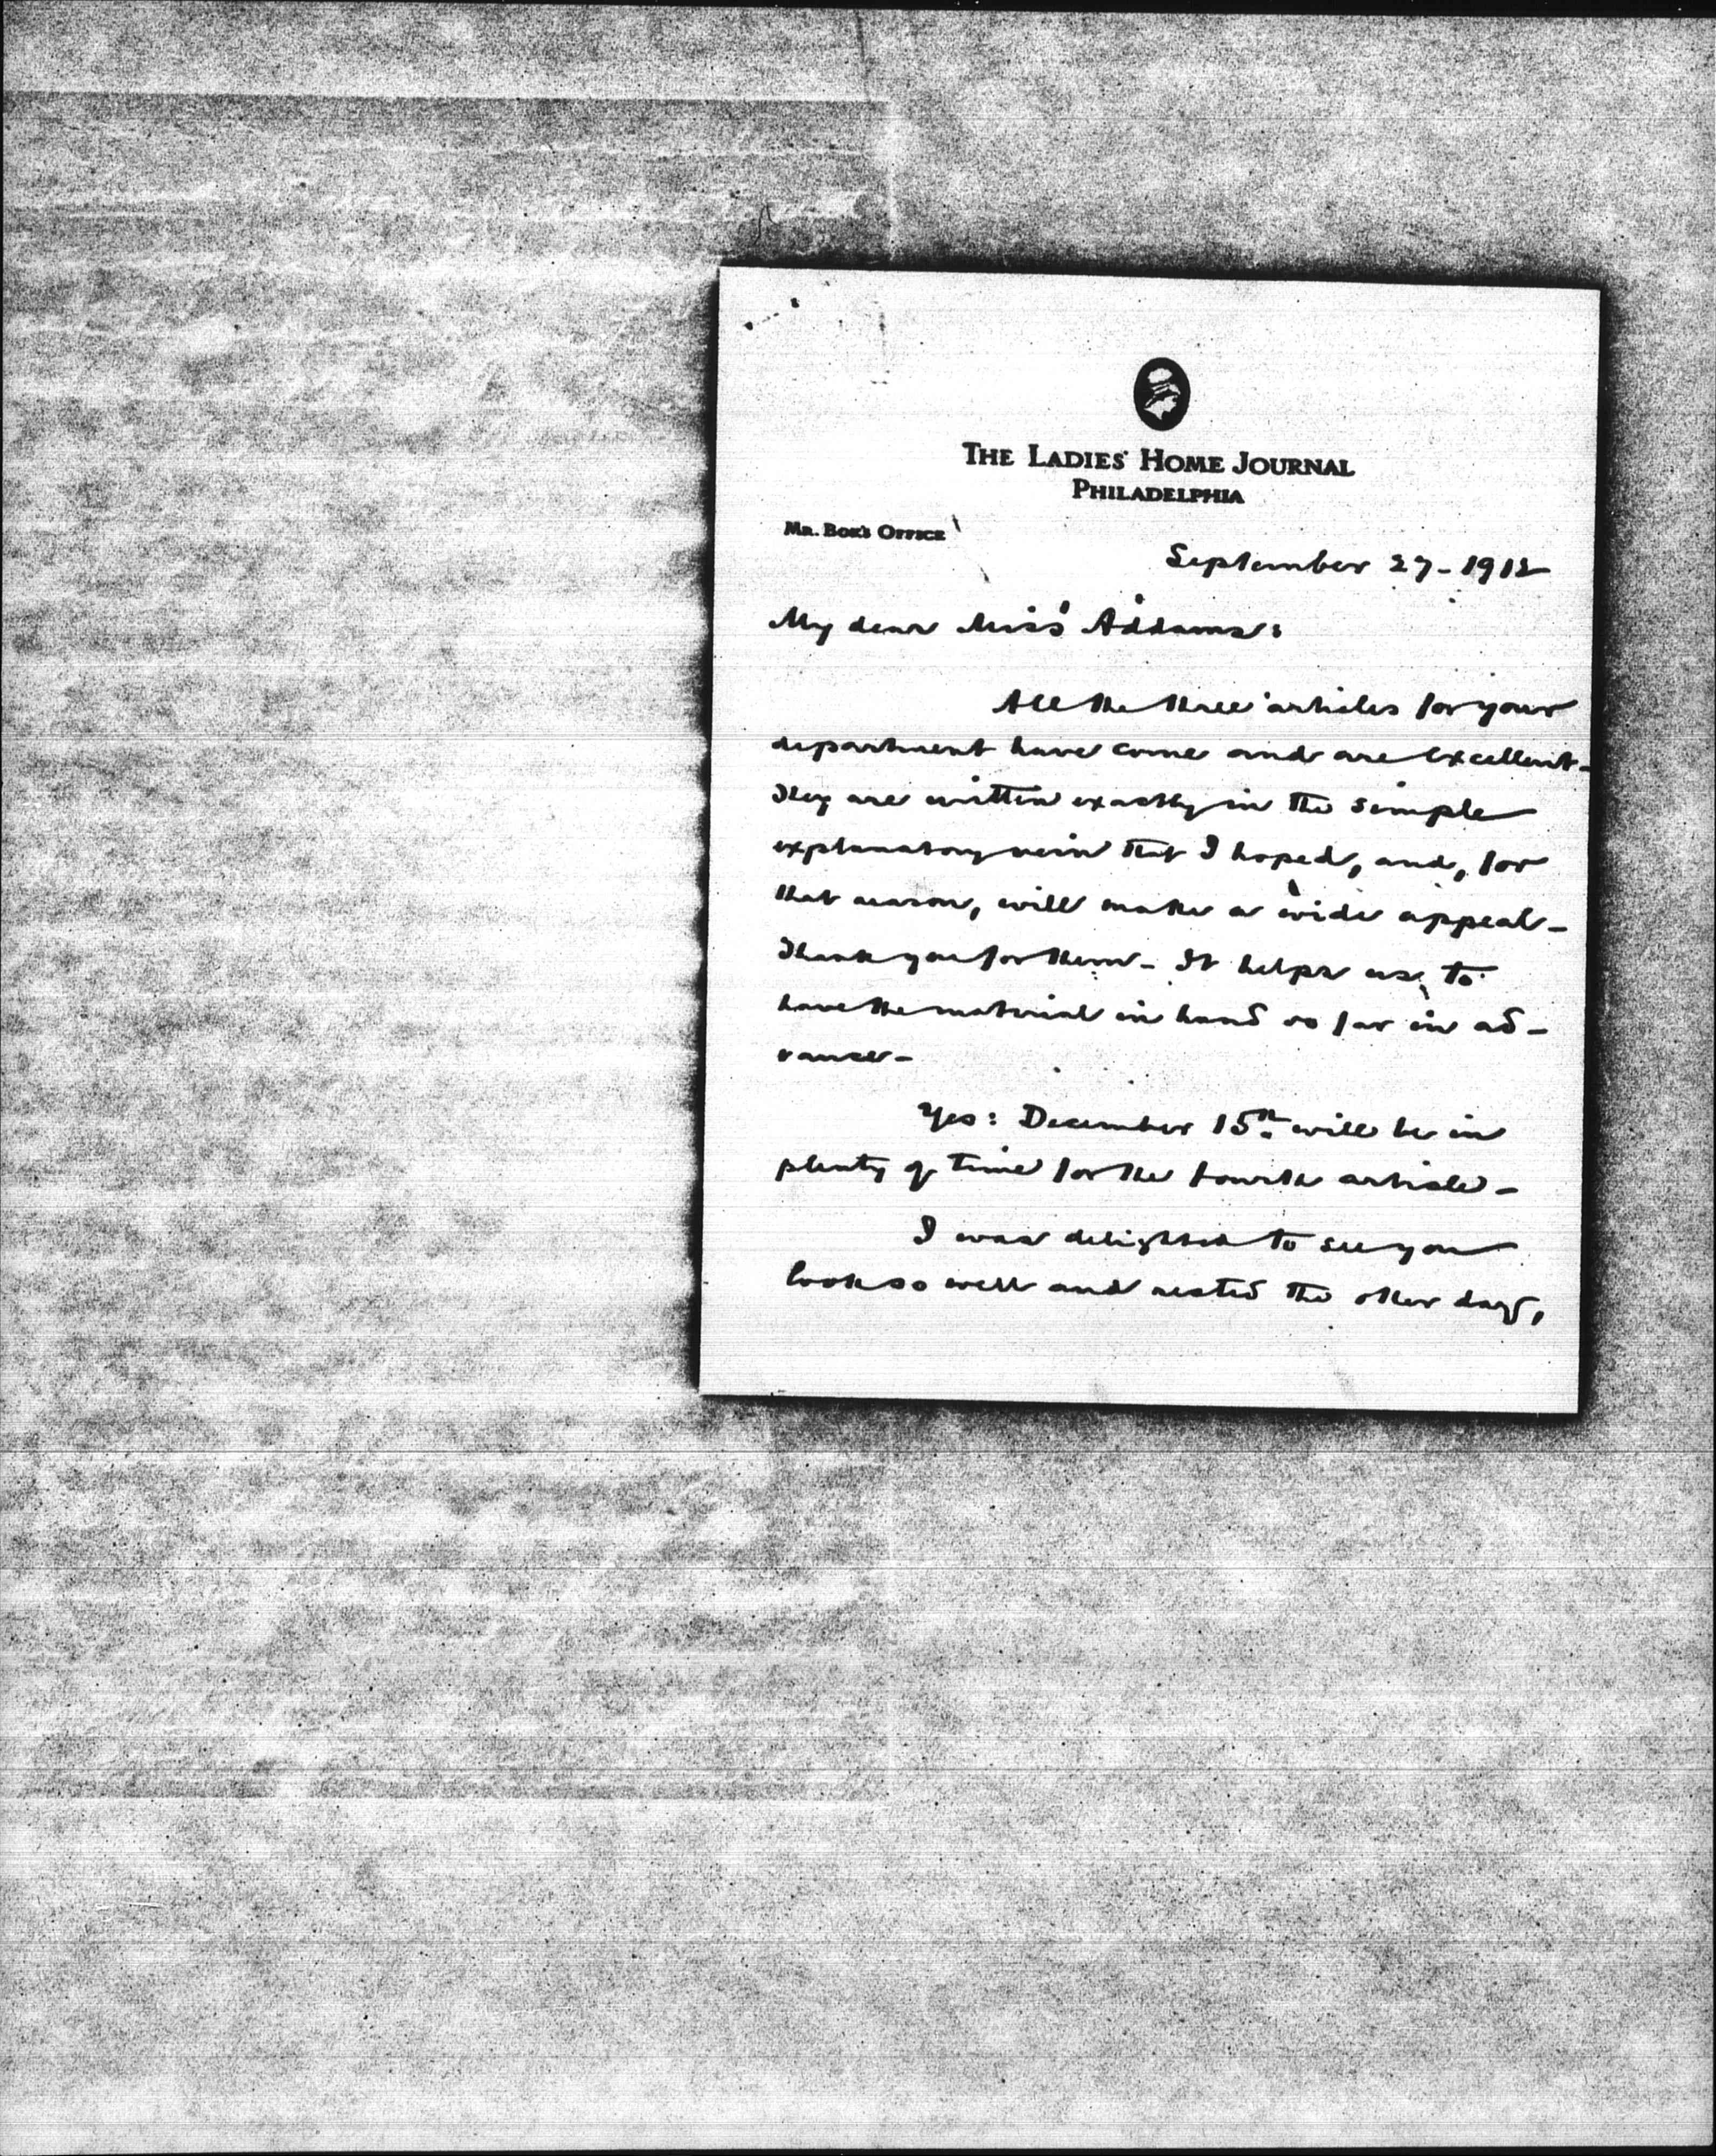 THE LADIES' HOME JOURNAL
PHILADELPHIA
MR. BOK'S OFFICE
September 27 - 1912
My dear Miss Addams:
All the three articles for your
department have come and are excellent -
They are written exactly in the simple
explanatory vein that I hoped, and, for
that reason, will make a wide appeal -
Thank you for them - It helps us, to
have the material in hand so far in ad -
vance -
Yes: December 15th will be in
plenty of time for the fourth article -
I was delighted to see you
look so well and rested the other day,